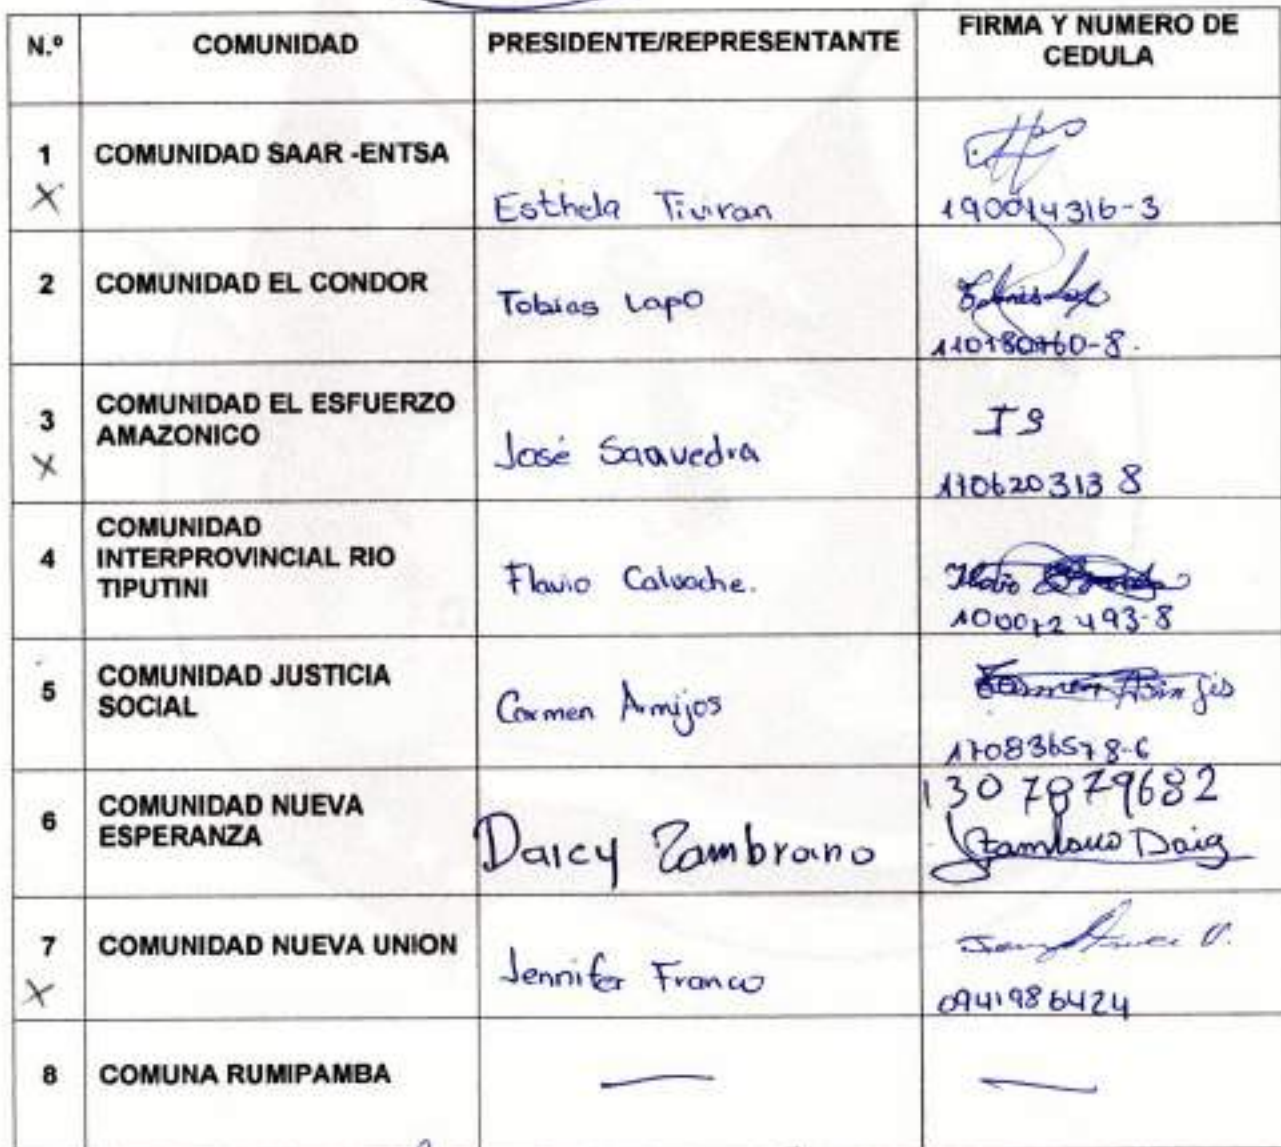 N.º COMUNIDAD PRESIDENTE/REPRESENTANTE FIRMA Y NUMERO DE
CEDULA
1 COMUNIDAD SAAR -ENTSA
X Esthela Tiviran 190014316-3
2 COMUNIDAD EL CONDOR Tobias Lapo
110180760-8.
3 COMUNIDAD EL ESFUERZO
AMAZONICO
X José Saavedra JS
1106203138
4 COMUNIDAD
INTERPROVINCIAL RIO
TIPUTINI
Flavio Calvache. Flavio
100012493-8
5 COMUNIDAD JUSTICIA
SOCIAL
Carmen Armijos Carmen
170836578-6
6 COMUNIDAD NUEVA
ESPERANZA
Darcy Zambrano 1307879682
7 COMUNIDAD NUEVA UNION
X Jennifer Franco
0941986424
8 COMUNA RUMIPAMBA — —